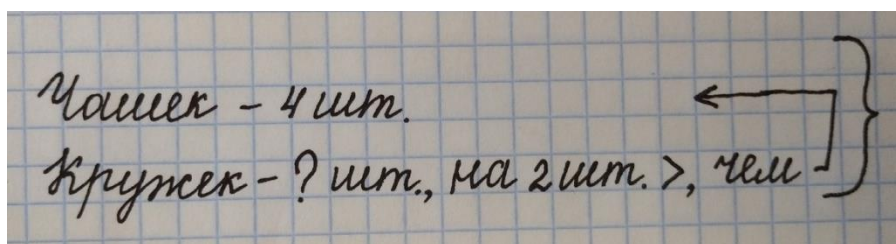 Чашек - 4 шт.
Кружек - ? шт., на 2 шт. >, чем